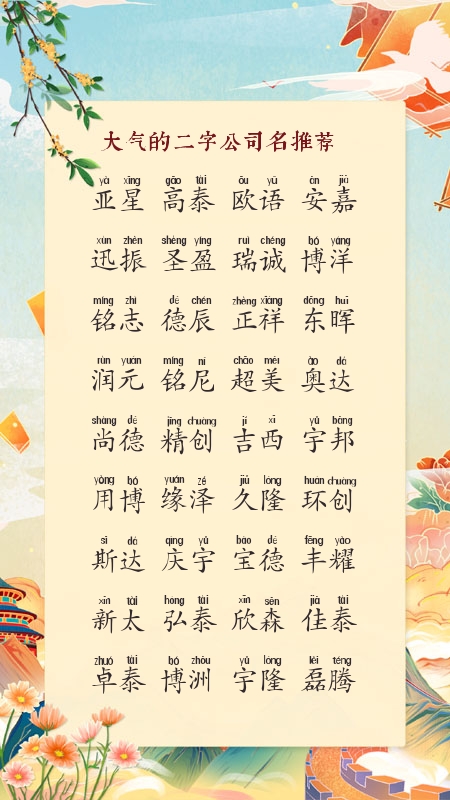 大气的二字公司名推荐
yà xīng gāo tài ōu yǔ ān jiā
亚星 高泰 欧语 安嘉
xùn zhèn shèng yíng ruì chéng bó yáng
迅振 圣盈 瑞诚 博洋
míng zhì dé chén zhèng xiáng dōng huī
铭志 德辰 正祥 东晖
rùn yuán míng ní chāo měi ào dá
润元 铭尼 超美 奥达
shàng dé jīng chuàng jí xī yǔ bāng
尚德 精创 吉西 宇邦
yòng bó yuán zé jiǔ lóng huán chuàng
用博 缘泽 久隆 环创
sī dá qìng yǔ bǎo dé fēng yào
斯达 庆宇 宝德 丰耀
xīn tài hóng tài xīn sēn jiā tài
新太 弘泰 欣森 佳泰
zhuó tài bó zhōu yǔ lóng lěi téng
卓泰 博洲 宇隆 磊腾